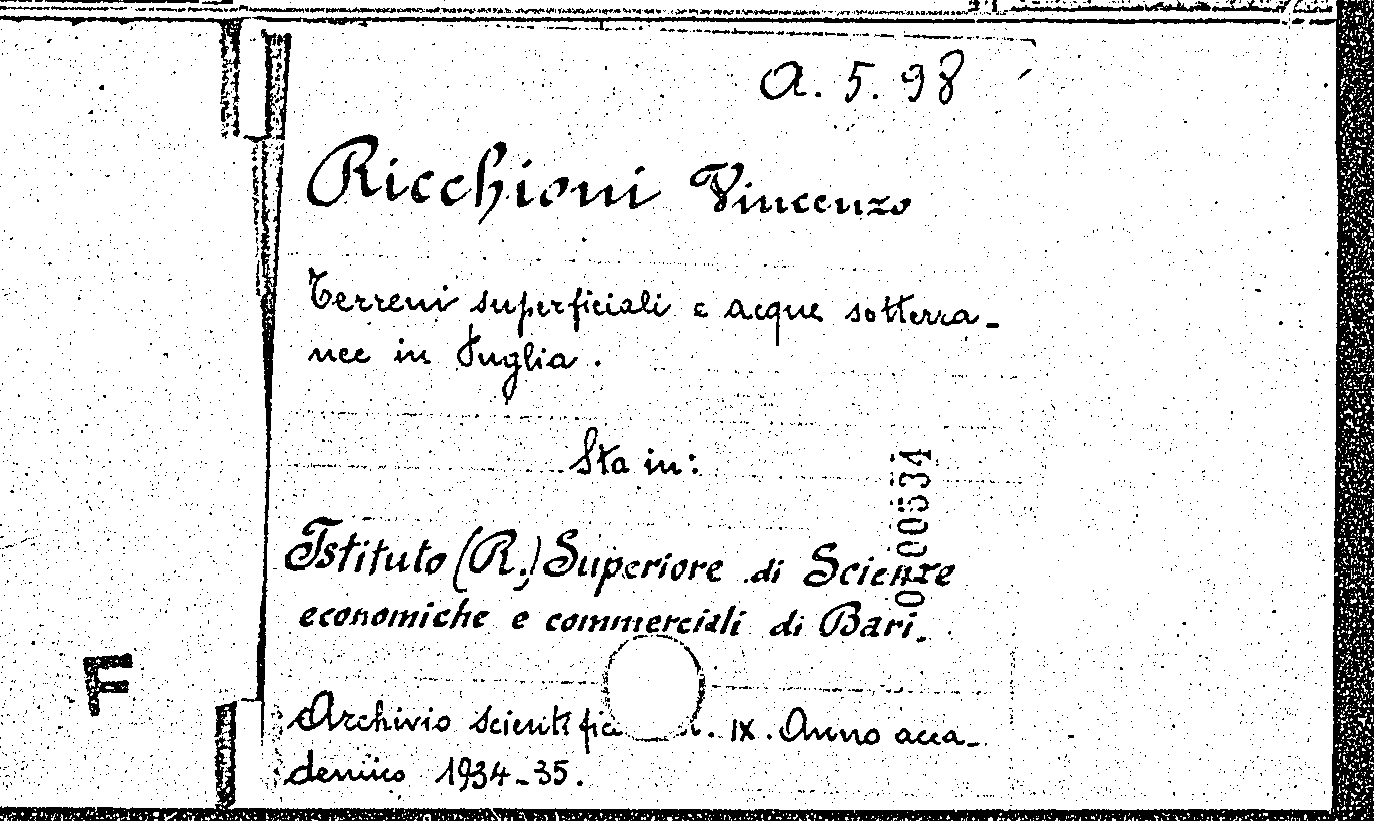 a. 5. 98
Ricchioni Vincenzo
Terreni superficiali e acque sotterra-
nee in Puglia.
Sta in:
Istituto (R.) Superiore di Scienze
economiche e commerciali di Bari.
Archivio IX. Anno acca-
demico 1934-35.
0000534
F